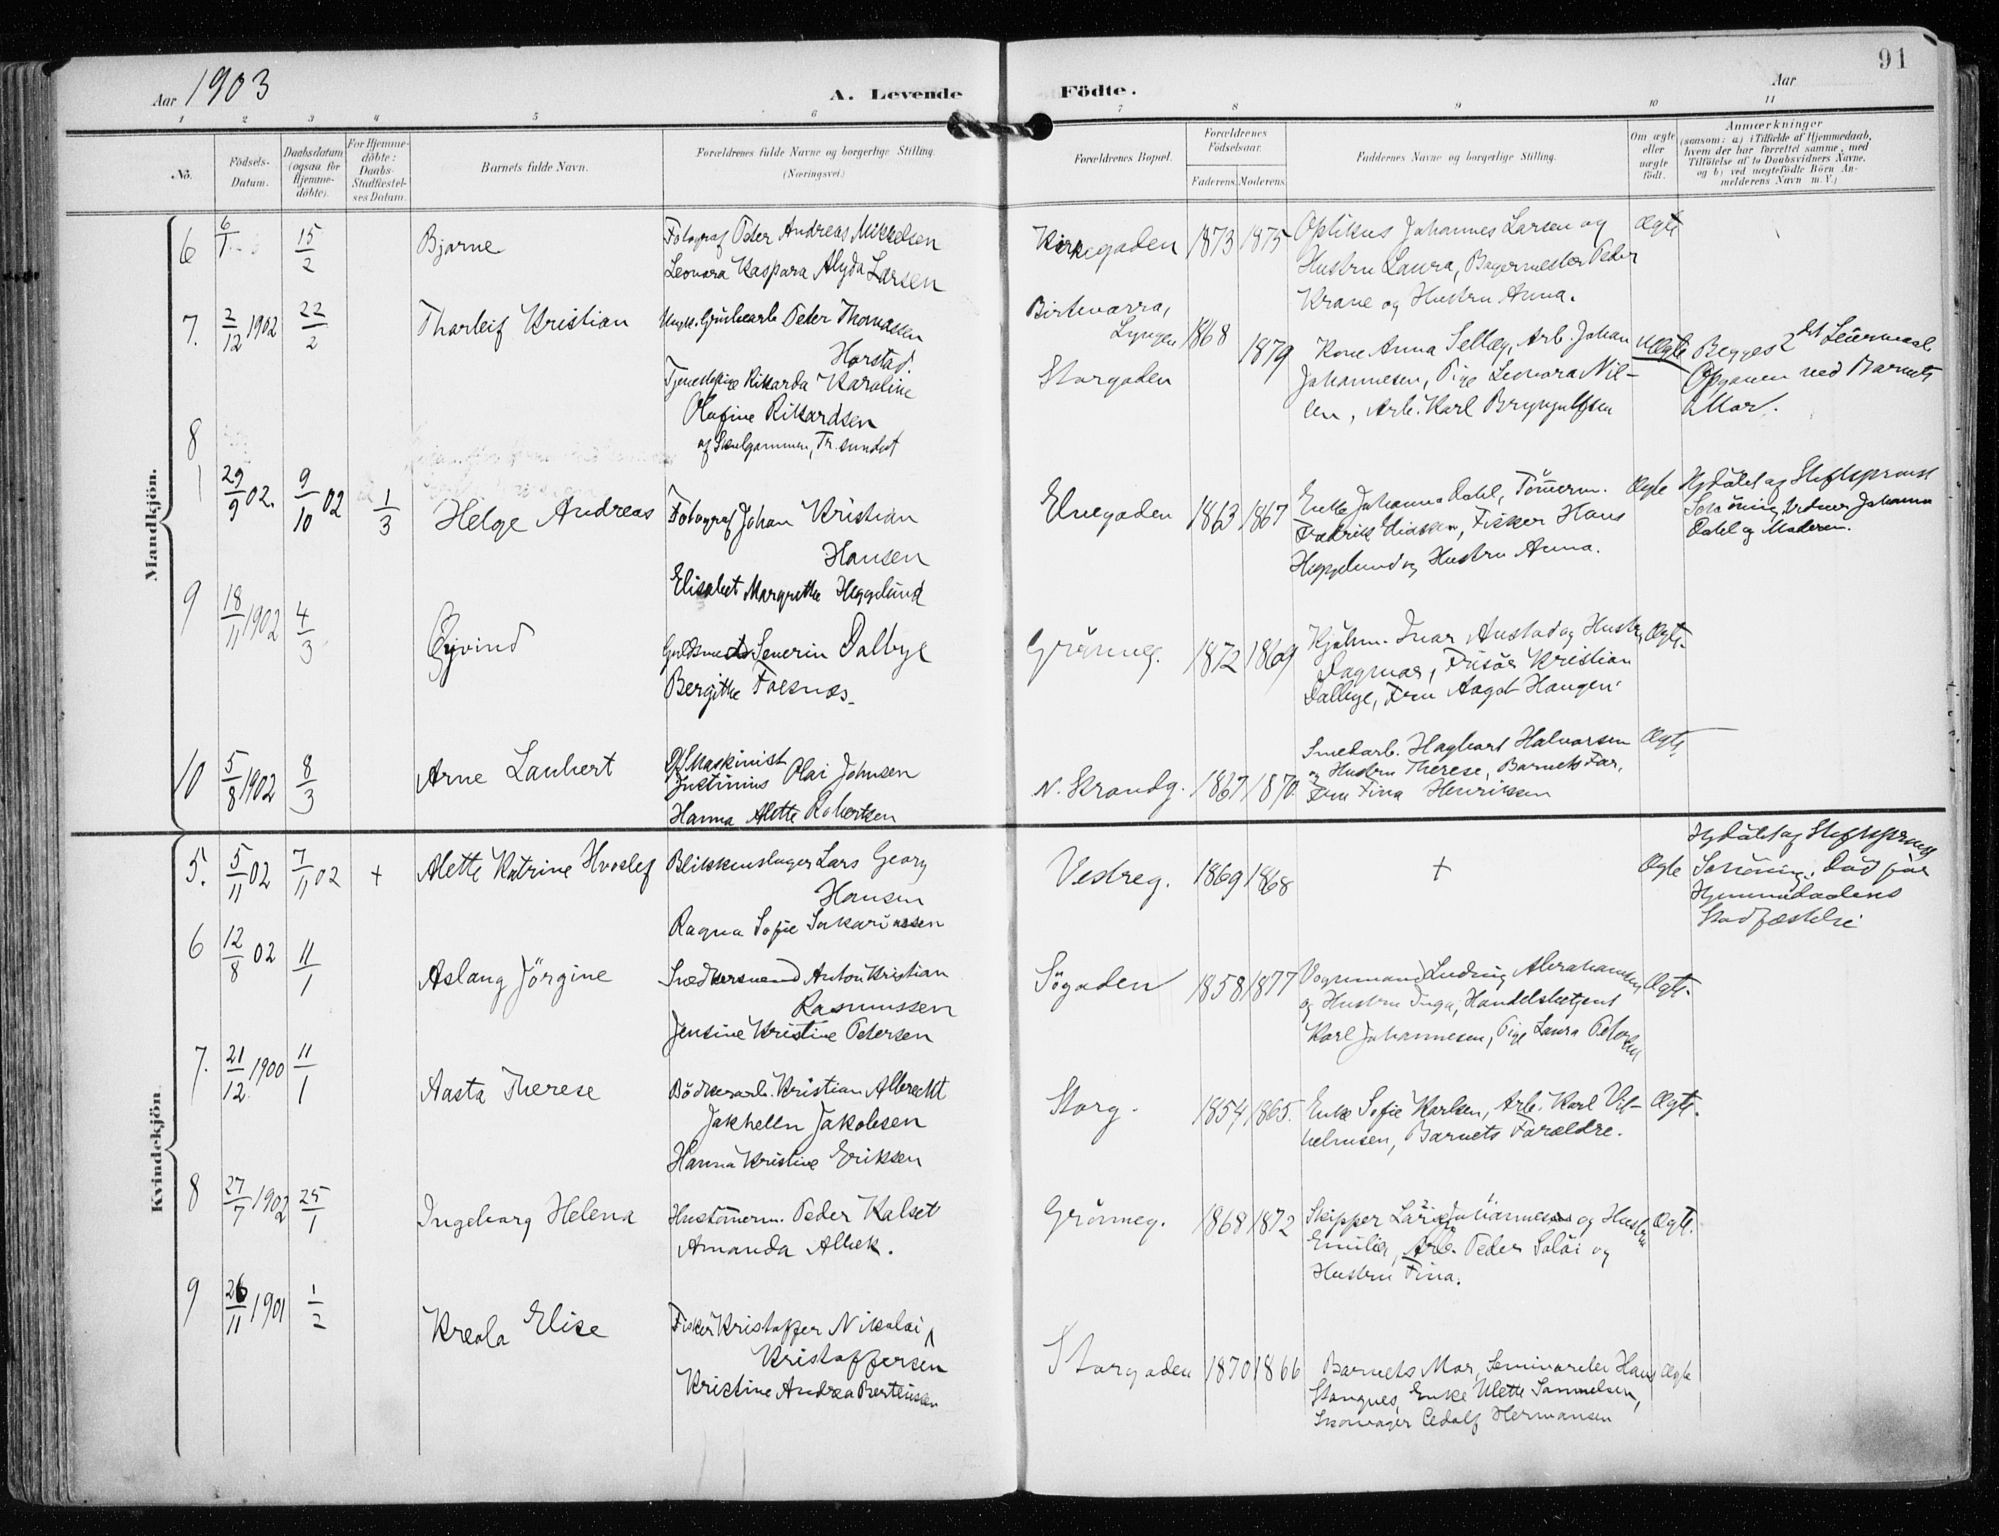 91
Aar 1903
A. Levende Födte.
Aar
1 2 3 4 5 6 7 8 9 10 11
No.
Födsels-
Datum.
Daabsdatum
(ogsaa for
Hjemme-
döbte).
For Hjemme-
döbte:
Daabs-
Stadfæstel-
ses Datum.
Barnets fulde Navn.
Forældrenes fulde Navne og borgerlige Stilling.
(Næringsvei.)
Forældrenes Bopæl.
Forældrenes
Födselsaar.
Faderens. Moderens.
Faddernes Navne og borgerlige Stilling.
Om ægte
eller
uægte
födt.
Anmærkninger
(saasom: a) i Tilfælde af Hjemmedaab,
hvem der har forrettet samme, med
Tilföielse af to Daabsvidners Navne,
og b) ved uægtefödte Börn An-
melderens Navn m. V.)
Mandkjön.
6 6/1 15/2 Bjarne
Fotograf Peder Andreas Mikkelsen
Leonora Kaspara Alyda Larsen
Kirkegaden 1873 1875
Optikus Johannes Larsen og
Hustru Laura, Bagermester Peder
Krane og Hustru Anna.
Ægte
7. 2/12 1902 22/2 Tharleif Kristian
Peder Thomassen
Harstad.
Rikarda Karoline
Olufine Rikardsen
Tr.sundet
Birtavarra,
Lyngen 1868
Storgaden 1879
Kone Anna Selbey, Arb. Johan
Johannesen, Pige Leonora Nil-
sen, Arb. Karl Brynjulfsen
Uægte
Begges 2det Leiermaal
Opgaven ved Barnets
Mor.
8 29/9 02. 9/10 02 1/3 Helge Andreas
Fotograf Johan Kristian
Hansen
Elisabet Margrethe Heggelund
Elvegaden 1863 1867
Enke Johanna Dahl, Tömerm.
Fredrik, Fisker Hans
Heggelund og Hustru Anna.
Ægte
Hjdöbt af Stiftsprovst
Schöning, Vidner Johanna
Dahl og Moderen.
9 18/11 1902 4/3 Øyvind
Severin Dalbye
Bergithe Foesnæs.
Grönneg. 1872 1869
Kjöbm. Ivar Anstad og Hustru
Dagmar, Frisör Kristian
Dalbye, Fru Aagot Haugen.
Ægte.
10 5/8 1902 8/3 Arne Lauhert
Maskinist
Justinius Olai Johnsen
Hanna Alette Robertsen
N. Strandg. 1867 1870.
Smedarb. Hagbart Halvorsen
og Hustru Therese, Barnets Far,
Fru Fina Henriksen
Ægte
Kvindekjön
5. 5/11 02 7/11 02 + Alette Katrine Hvoslef
Blikkenslager Lars Georg
Hansen
Ragna Sofie Sakariassen
Vestreg. 1869 1868 +
Ægte
Hjdöbt af Stiftsprovst
Schöning. Död för
Hjemmedaabens
Stadfæstelse
6 12/8 02 11/1 Aslaug Jörgine
Snedkersvend Anton Kristian
Rasmussen
Jensine Kristine Petersen
Sögaden 1858 1877
Vognmand Ludvig Abrahamsen
og Hustru Inga, Handelsbetjent
Karl Johannesen, Pige Laura Petersen
Ægte.
7. 21/12 1900 11/1 Aasta Therese
Bödkerarb. Kristian Albrecht
Jakhelln Jakobsen
Hanna Kristine Eriksen
Storg. 1854 1865.
Enke Sofie Karlsen, Arb. Karl Vil-
helmsen, Barnets Forældre.
Ægte.
8 27/7 1902 25/1 Ingeborg Helena
Hustömerm. Peder Kalset
Amanda Albek.
Grönneg. 1868 1872
Skipper Johannesen og Hustru
Emilie, Arb. Peder Solöi og
Hustru Fina.
Ægte.
9 26/11 1901 1/2 Kreola Elise
Fisker Kristoffer Nikolai
Kristoffersen
Kristine Andrea Berteussen
Storgaden 1870 1866
Barnets Mor, Seminarelev Hans
Stangnes, Enke Ulette Samuelsen,
Skomager Cedolf Hermansen
Ægte